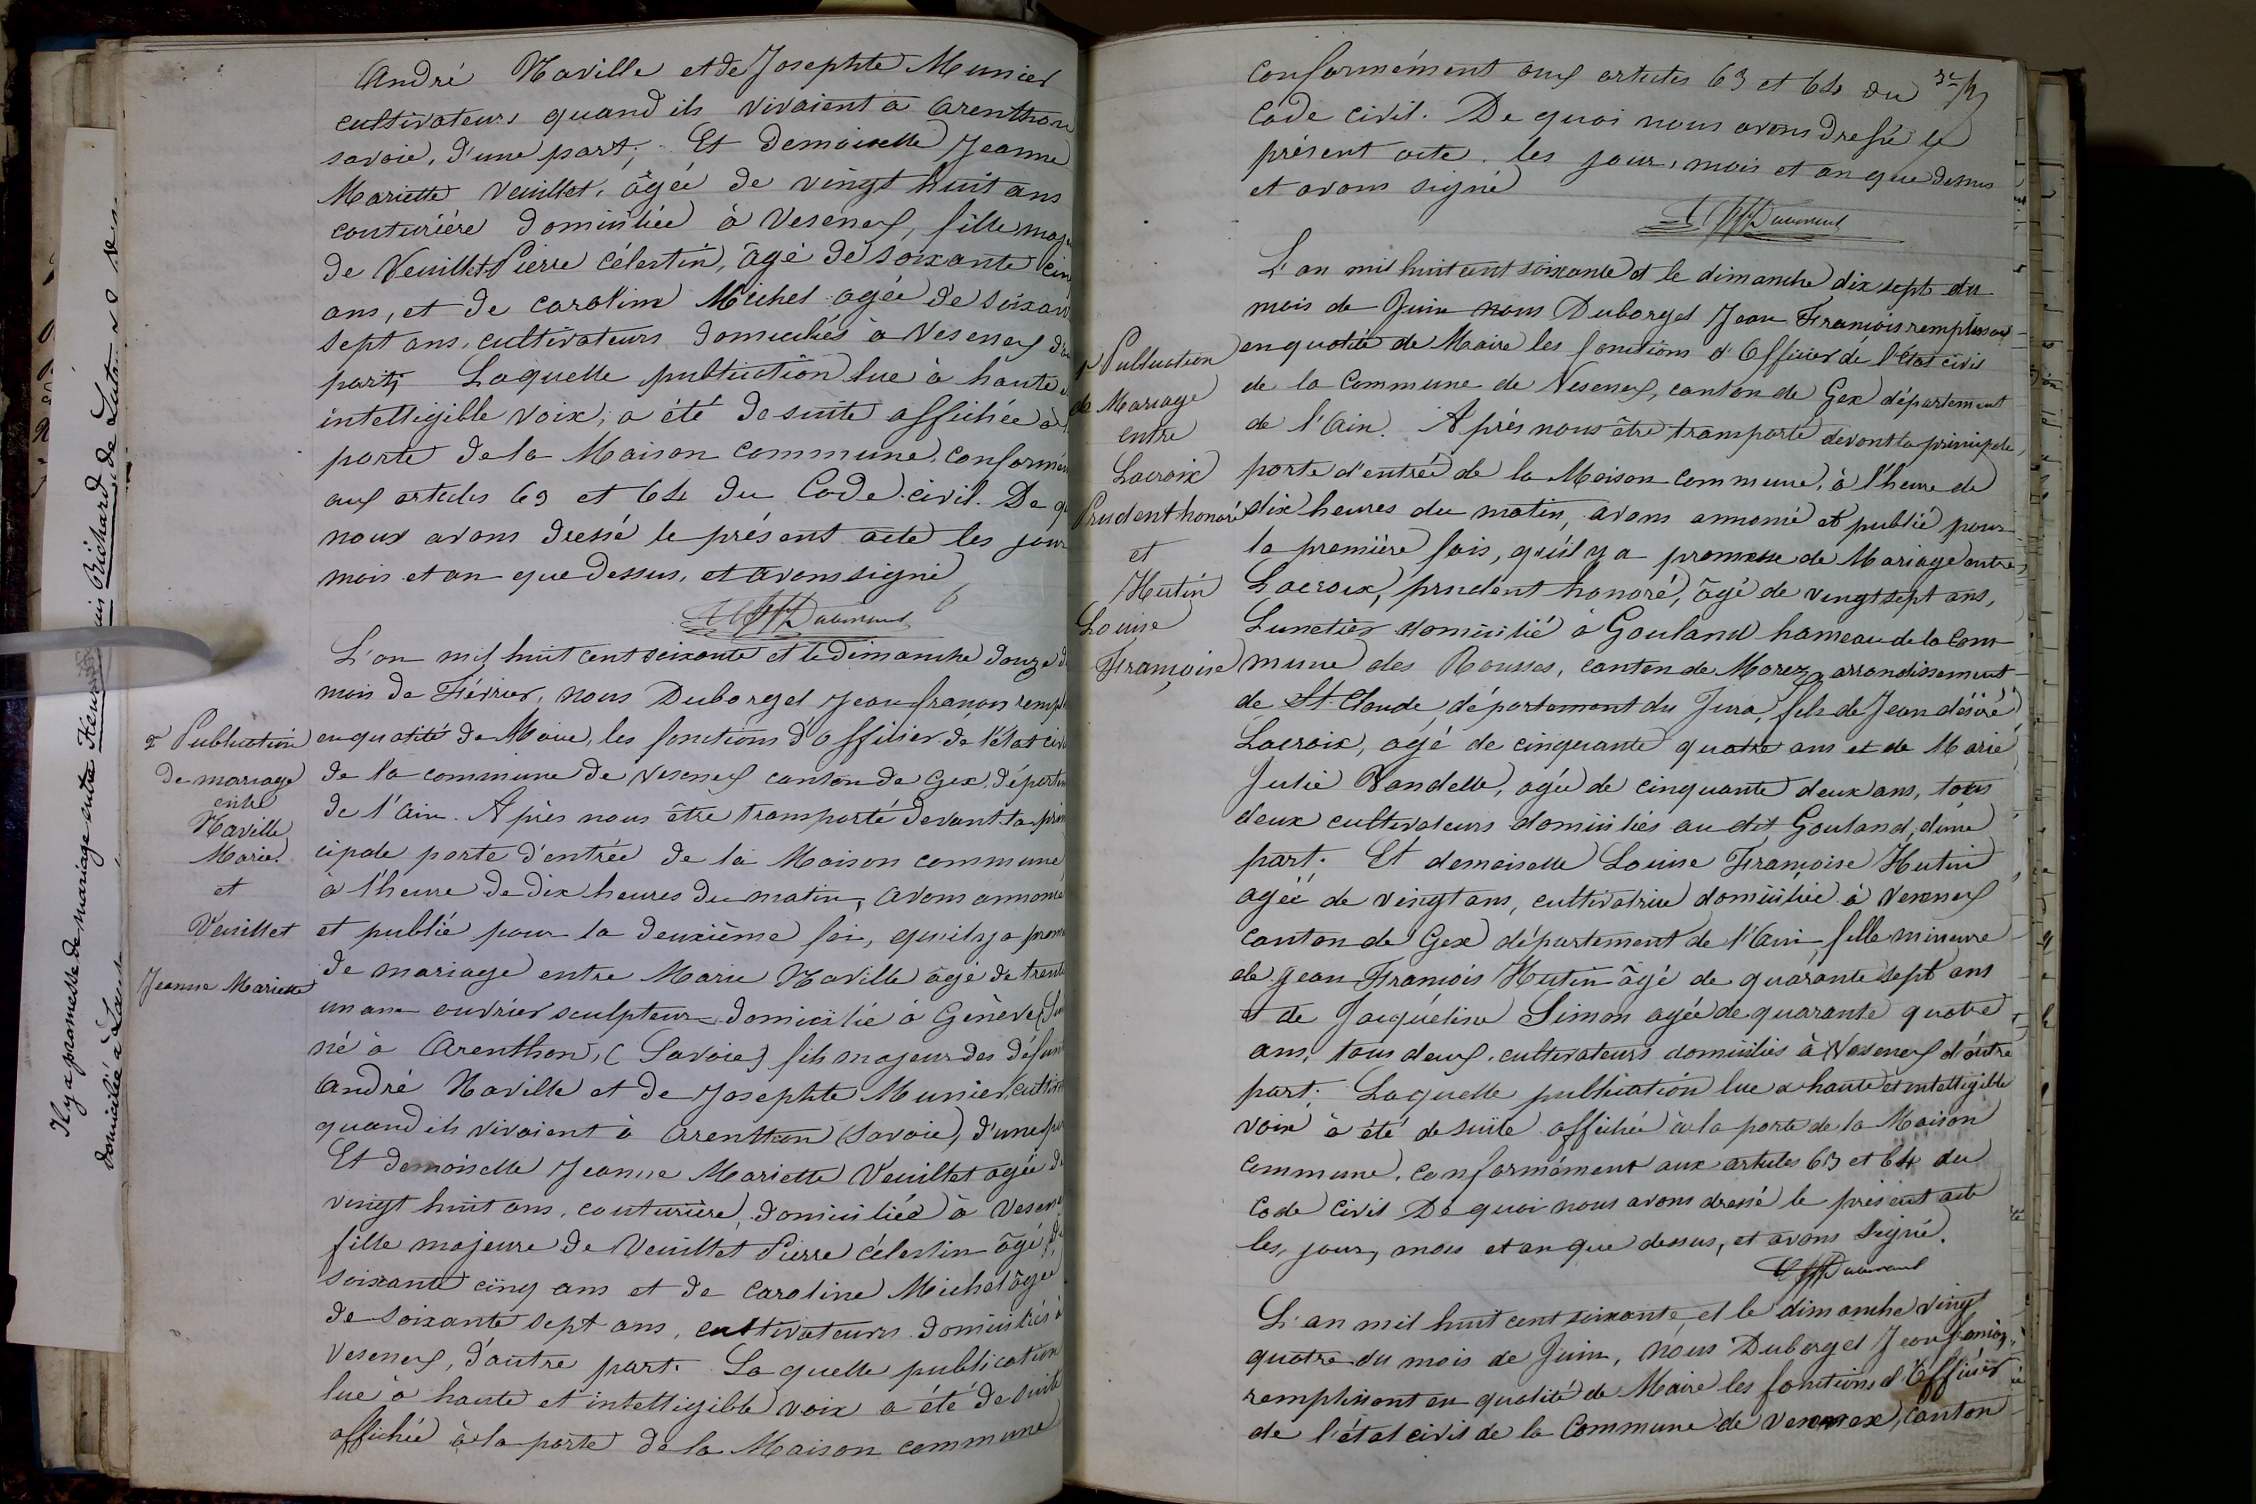 André Naville et de Josephte Munier
cultivateurs quand ils vivaient à Arenthon
savoie, d'une part; Et demoiselle Jeanne
Mariette Veuillet, âgée de vingt huit ans
couturière domiciliée à Vesenex, fille maj
de Veuillet Pierre célestin, âgé de soixante cin
ans, et de caroline Michel agée de soixan
sept ans, cultivateurs domiciliés à Vesenex d'a
part; Laquelle publication lue à haute
intelligible voix, a été de suite affichée à
porte de la Maison commune, conformém
aux articles 63 et 64 du Code civil. De q
nous avons dressé le présent acte les jour
mois et an que dessus, et avons signé
L'an mil huit cent soixante et le dimanche douze d
mois de Février, nous Duborgel Jean françois rempl
en qualité de Maire, les fonctions d'officier de l'état civ
de la commune de Vesenex canton de Gex, départem
de l'Ain. Après nous être transporté devant la prin
cipale porte d'entrée de la Maison commune
à l'heure de dix heures du matin, avons annoncé
et publié pour la deuxième foi, qu'il y a prom
de mariage entre Marie Naville âgé de trente
un ans ouvrier sculpteur domicilié à Génève (Su
né à Arenthon, (Savoie) fils majeur des défun
André Naville et de Josephte Munier, cultiv
quand ils vivaient à Arenthon (Savoie), d'une pa
Et demoiselle Jeanne Mariette Veuillet agée de
vingt huit ans, couturière, domiciliée à Vesene
fille majeure de Veuillet Pierre célestin âgé de
soixante cinq ans et de Caroline Michel âgée
de soixante sept ans, cultivateurs domiciliés à
Vesenex, d'autre part. Laquelle publication
lue à haute et intelligible voix a été de suite
affichée à la porte de la Maison commune
2e Publication
de mariage
entre
Naville
Marie
et
Veuillet
Jeanne Mariette
Il y a promesse de mariage entre Richard, de
domiciliée à
conformément aux articles 63 et 64 du
Code civil. De quoi nous avons dressé le
présent acte, les jour, mois et an que dessus
et avons signé
L'an mil huit cent soixante et le dimanche dix sept du
mois de Juin nous Duborgel Jean François remplissant
en qualité de Maire les fonctions d'Officier de l'état civil
de la Commune de Vesenex, canton de Gex département
de l'Ain. Après nous être transporté devant la principale
porte d'entrée de la Maison commune, à l'heure de
dix heures du matin, avons annoncé et publié pour
la première fois, qu'il y a promesse de Mariage entre
Lacroix, prudent honoré, âgé de vingt sept ans,
Lunetier domicilié à Gouland hameau de la Com
mune des Rousses, canton de Morez arrondissement
de St Claude, département du Jura, fils de Jean désiré
Lacroix, agé de cinquante quatre ans et de Marie
Julie Vandelle, agée de cinquante deux ans, tous
deux cultivateurs domiciliés au dit Gouland, d'une
part. Et demoiselle Louise Françoise Hutin
agée de vingt ans, cultivatrice domiciliée à Vesenex
canton de Gex département de l'Ain, fille mineure
de Jean François Hutin âgé de quarante sept ans
et de Jacquéline Simon agée de quarante quatre
ans, tous deux, cultivateurs domiciliés à Vesenex d'autre
part. Laquelle publication lue à haute et intelligible
voix à été de suite affichée à la porte de la Maison
commune, conformément aux articles 63 et 64 du
Code civil De quoi nous avons dressé le présent acte
les, jour, mois et an que dessus, et avons signé.
L'an mil huit cent soixante, et le dimanche vingt
quatre du mois de Juin, nous Duborgel Jean françois
remplissant en qualité de Maire les fonctions d'Officier
de l'état civil de la Commune de Vesenex, canton
1e Publication
de Mariage
entre
Lacroix
Prudent honoré
et
Hutin
Louise
Françoise